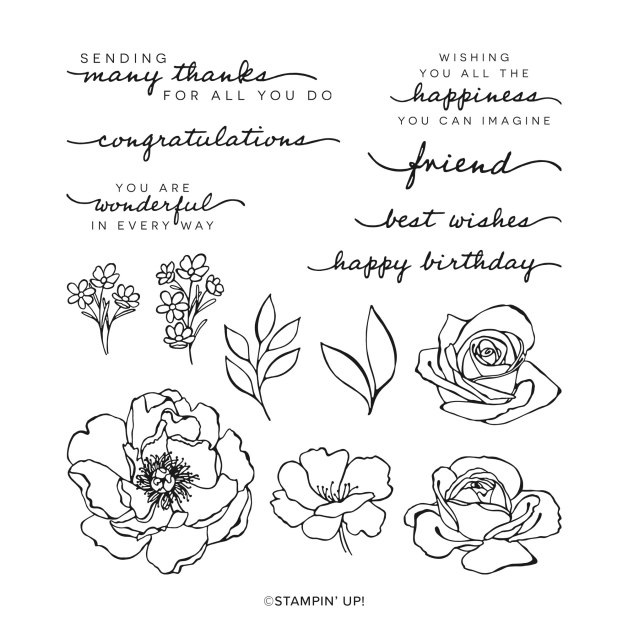 SENDING
many thanks
FOR ALL YOU DO
congratulations
YOU ARE
wonderful
IN EVERY WAY
WISHING
YOU ALL THE
happiness
YOU CAN IMAGINE
friend
best wishes
happy birthday
©STAMPIN' UP!